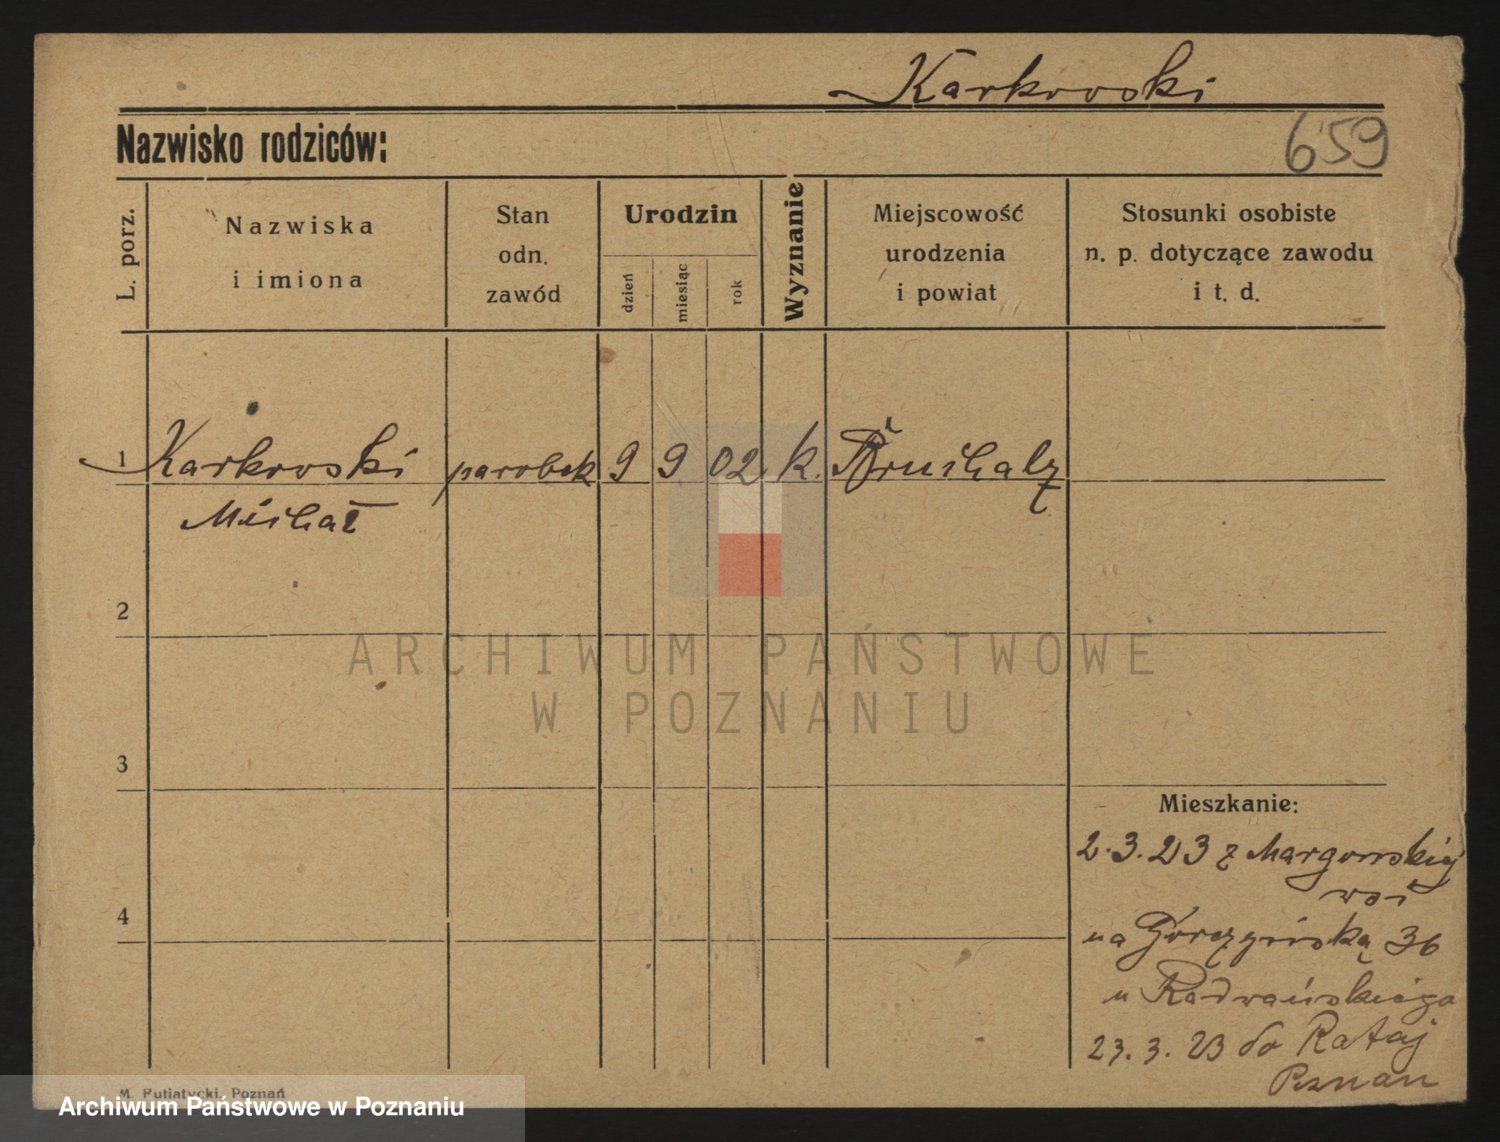 Karkowski
Nazwisko rodziców:
659
L. porz.
Nazwiska
i imiona
Stan
odn.
zawód
Urodzin
dzień
miesiąc
rok
Wyznanie
Miejscowość
urodzenia
i powiat
Stosunki osobiste
n. p. dotyczące zawodu
i t. d.
1 Karkowski parobek 9 9 02 k.
Michał
2
ARCHIWUM PAŃSTWOWE
W POZNANIU
3
Mieszkanie:
2.3.23 z Margońskiej
wsi
4
na Górczyńską 36
u Radwańskiego
23.3.23 do Rataj
Poznan
M. Putiatycki, Poznań
Archiwum Państwowe w Poznaniu